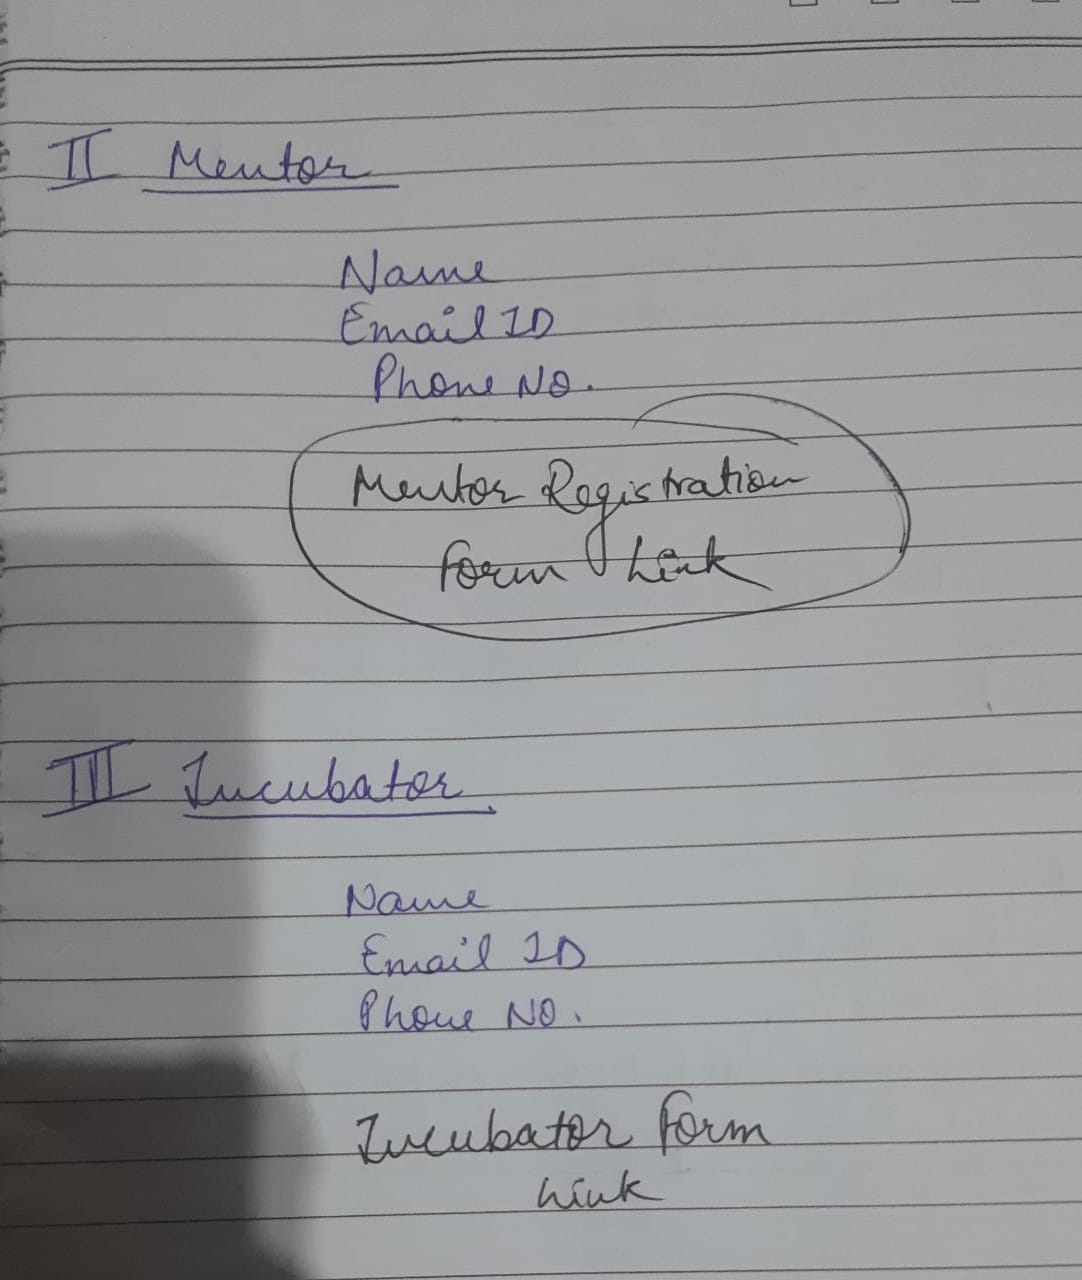 II Mentor
Name
Email ID
Phone No.
Mentor Registration
Form Link
III Incubator
Name
Email ID
Phone No.
Incubator Form
Link